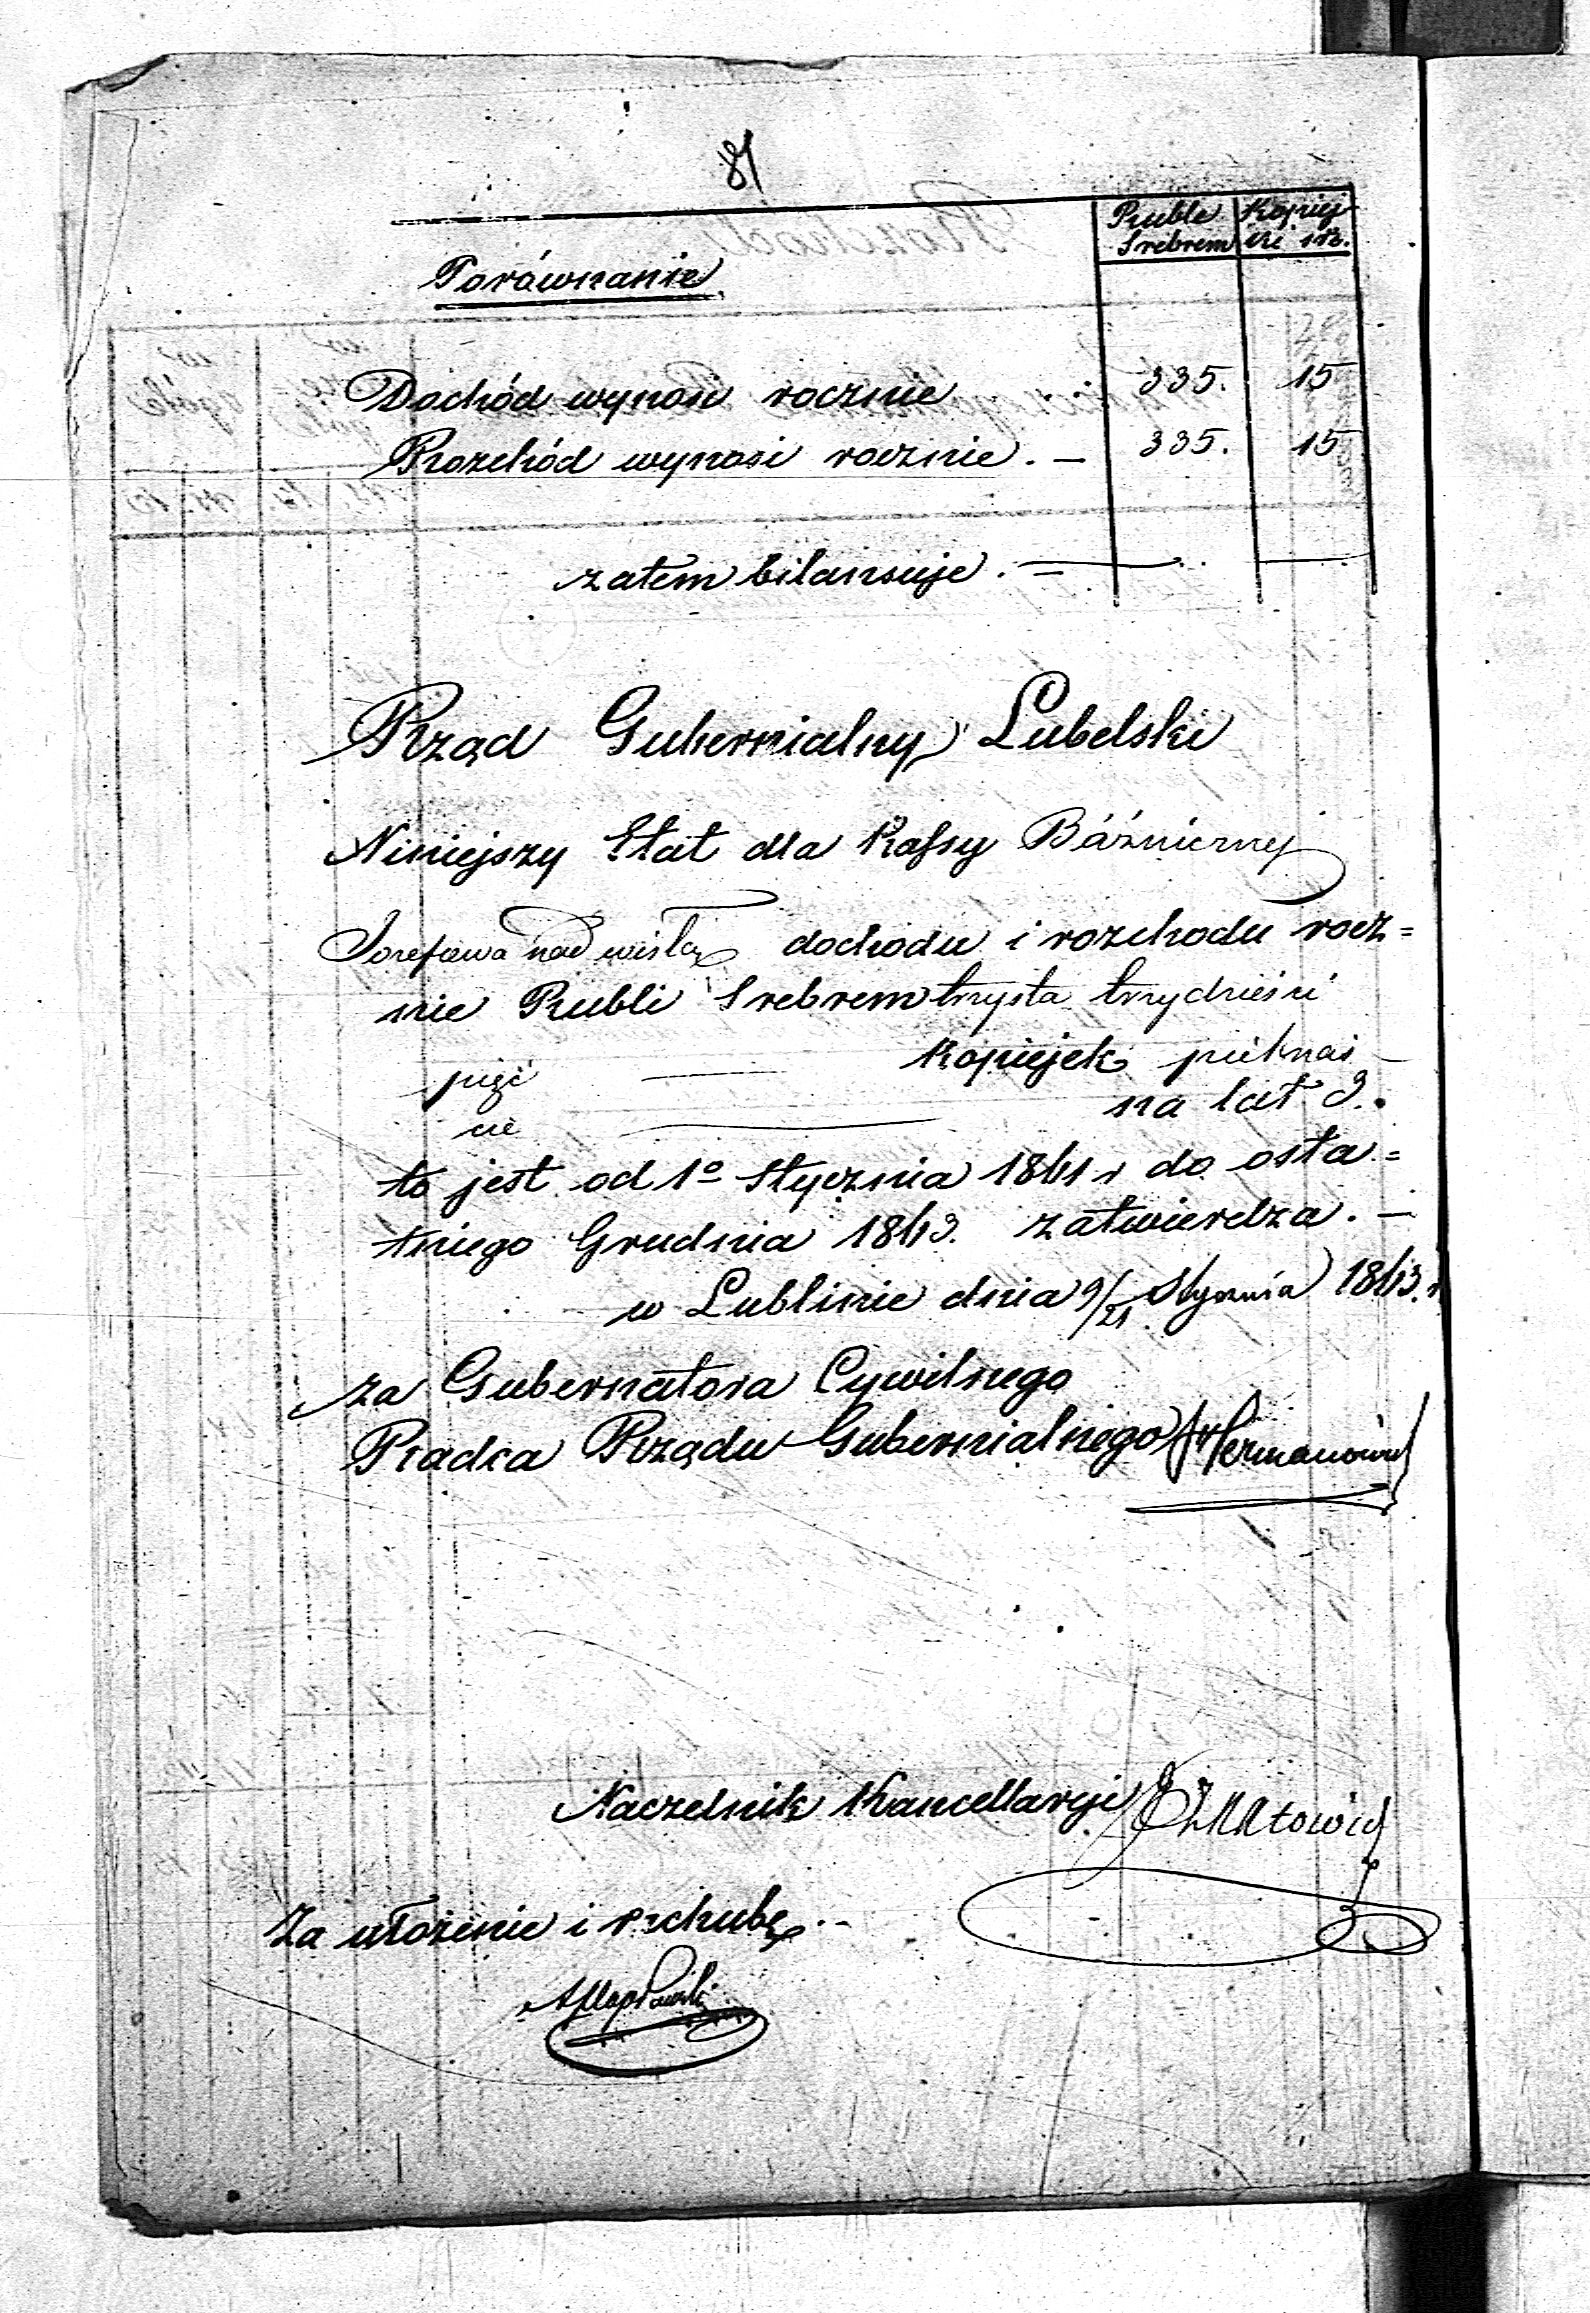 81
Ruble Srebrem Kopiej
ki sr.
Porównanie
Dochód wynosi rocznie 335. 15
Rozchód wynosi rocznie . — 335. 15
zatem bilansuje . —
Rząd Gubernialny Lubelski
Niniejszy Etat dla Kassy Bóżnicznej
Jozefowa nad wisłą dochodu i rozchodu rocz=
nie Rubli Srebrem trzysta trzydzieści
pięć — Kopiejek piętnaś
cie — na lat 3.
to jest od 1o Stycznia 1861 r do osta=
tniego Grudnia 1863. zatwierdza. —
w Lublinie dnia 9/21 Stycznia 1863. r
za Gubernatora Cywilnego
Radca Rządu Gubernialnego
Naczelnik Kancellaryi
Za ułożenie i rachubę